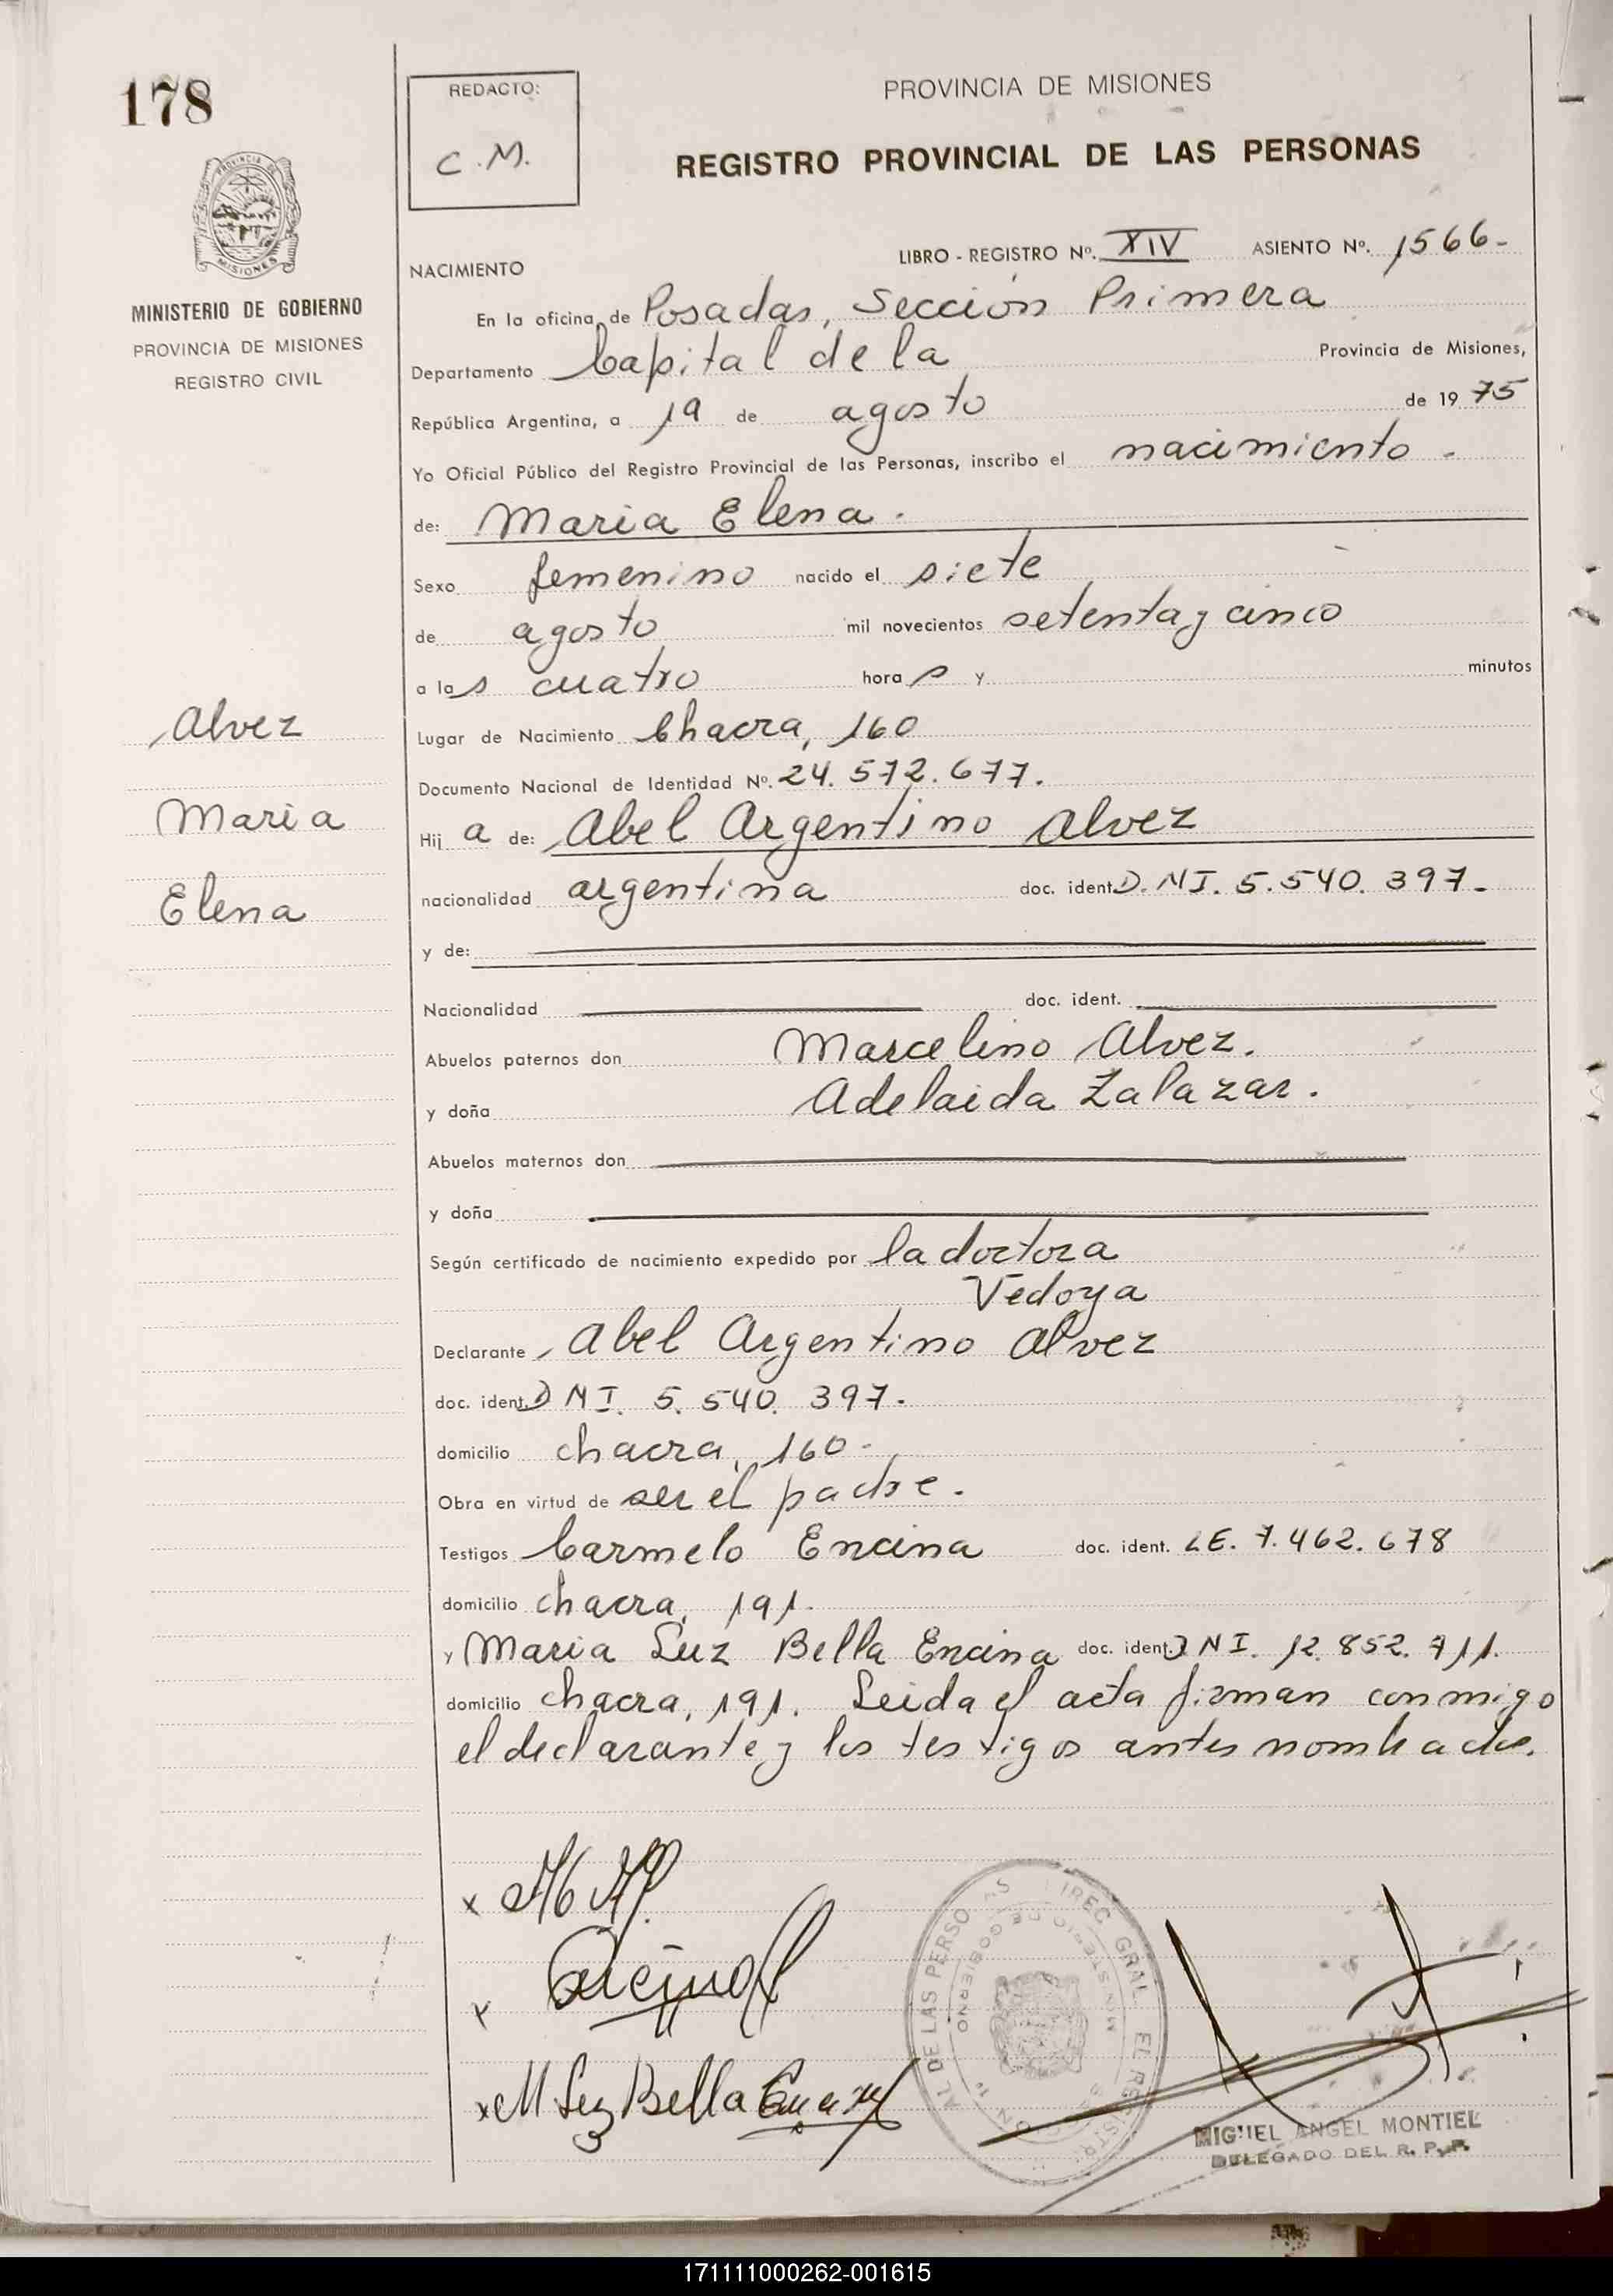 178
REDACTO:
C.M.
PROVINCIA DE MISIONES
REGISTRO PROVINCIAL DE LAS PERSONAS
PROVINCIA DE
MISIONES
MINISTERIO DE GOBIERNO
PROVINCIA DE MISIONES
REGISTRO CIVIL
LIBRO - REGISTRO Nº. XIV ASIENTO Nº. 1566-
NACIMIENTO
En la oficina de Posadas, Sección Primera
Departamento Capital de la Provincia de Misiones,
República Argentina, a 19 de agosto de 1975
Yo Oficial Público del Registro Provincial de las Personas, inscribo el nacimiento -
de: Maria Elena.
Sexo femenino nacido el siete
de agosto mil novecientos setenta y cinco
a las cuatro horas y minutos
Alvez
Maria
Elena
Lugar de Nacimiento Chacra, 160
Documento Nacional de Identidad Nº. 24.572.677.
Hija de: Abel Argentino Alvez
nacionalidad argentina doc. ident. D.NI. 5.540.397-
y de:
Nacionalidad doc. ident.
Abuelos paternos don Marcelino Alvez.
y doña Adelaida Zalazar.
Abuelos maternos don
y doña
Según certificado de nacimiento expedido por la doctora
Vedoya
Declarante Abel Argentino Alvez
doc. ident. DNI. 5.540.397.
domicilio chacra, 160-
Obra en virtud de ser el padre.
Testigos Carmelo Encina doc. ident. LE. 7.462.678
domicilio chacra, 191.
y Maria Luz Bella Encina doc. ident. DNI. 12.852.711.
domicilio chacra, 191. Leida el acta firman conmigo
el declarante y los testigos antes nombrados.
x
x
x M Luz Bella Encina
DIREC GRAL EL REGISTR AL DE LAS PERSO AS
MINISTERIO DE GOBIERNO
MIGUEL ANGEL MONTIEL
DELEGADO DEL R. P. P.
171111000262-001615